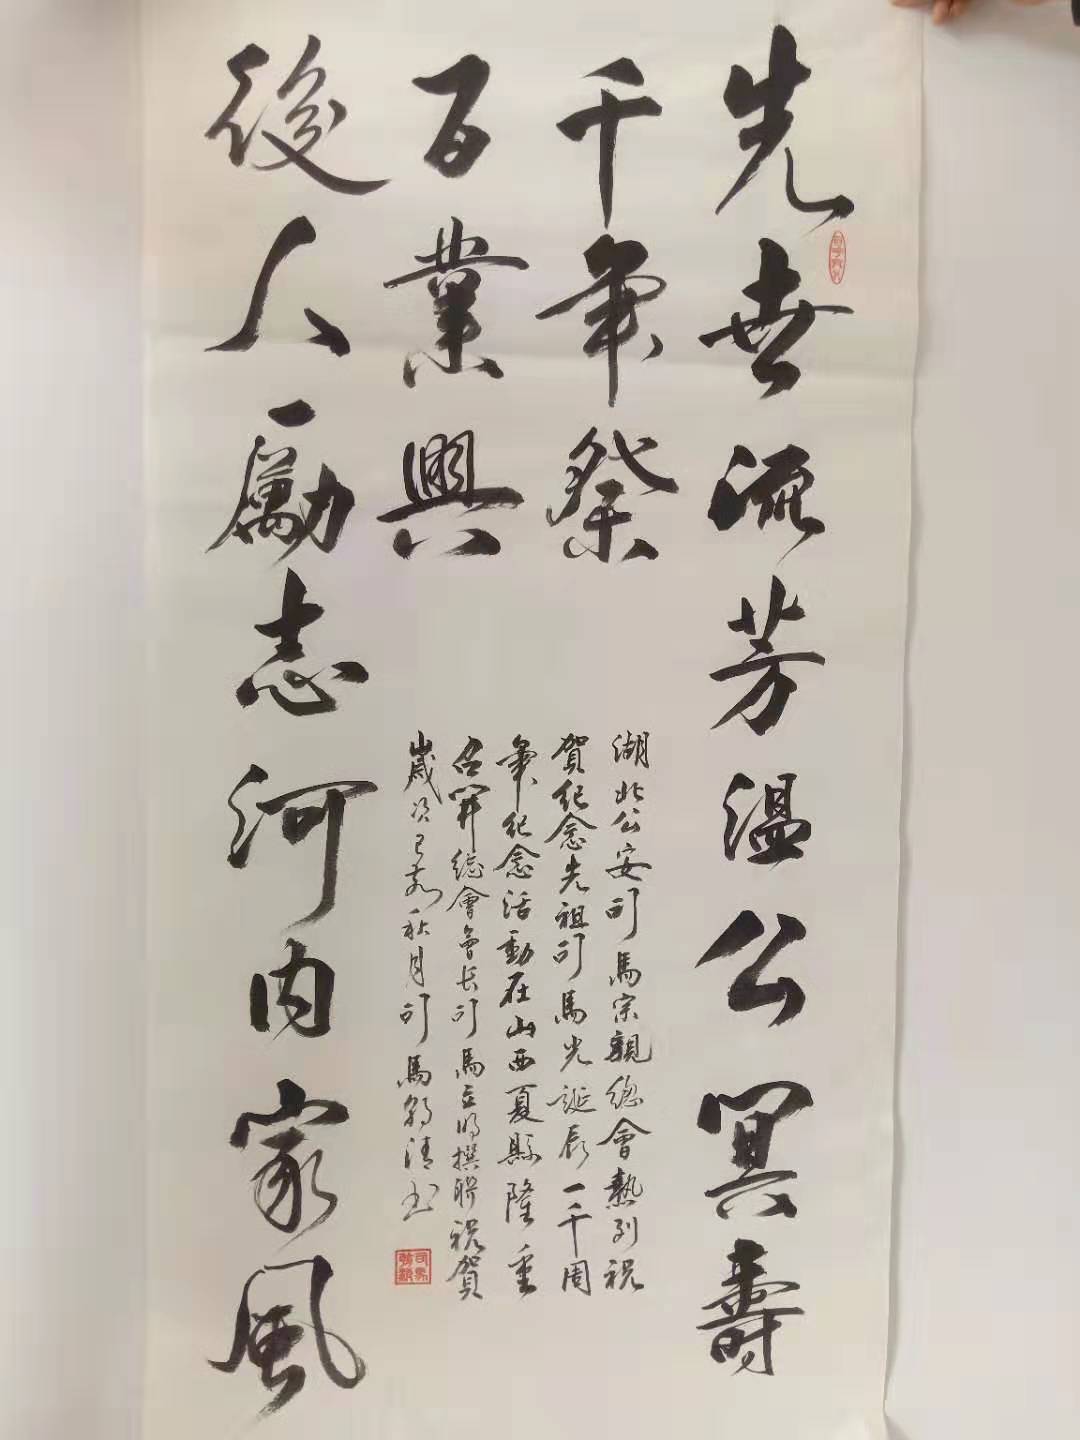 先世流芳溫公冥壽
千年祭
百業興
後人勵志河内家風
湖北公安司馬宗親總會熱列祝
賀紀念先祖司馬光誕辰一千周
年紀念活動在山西夏縣隆重
召開總會會長司馬立明撰聯祝賀
歲次己亥秋月司馬清书